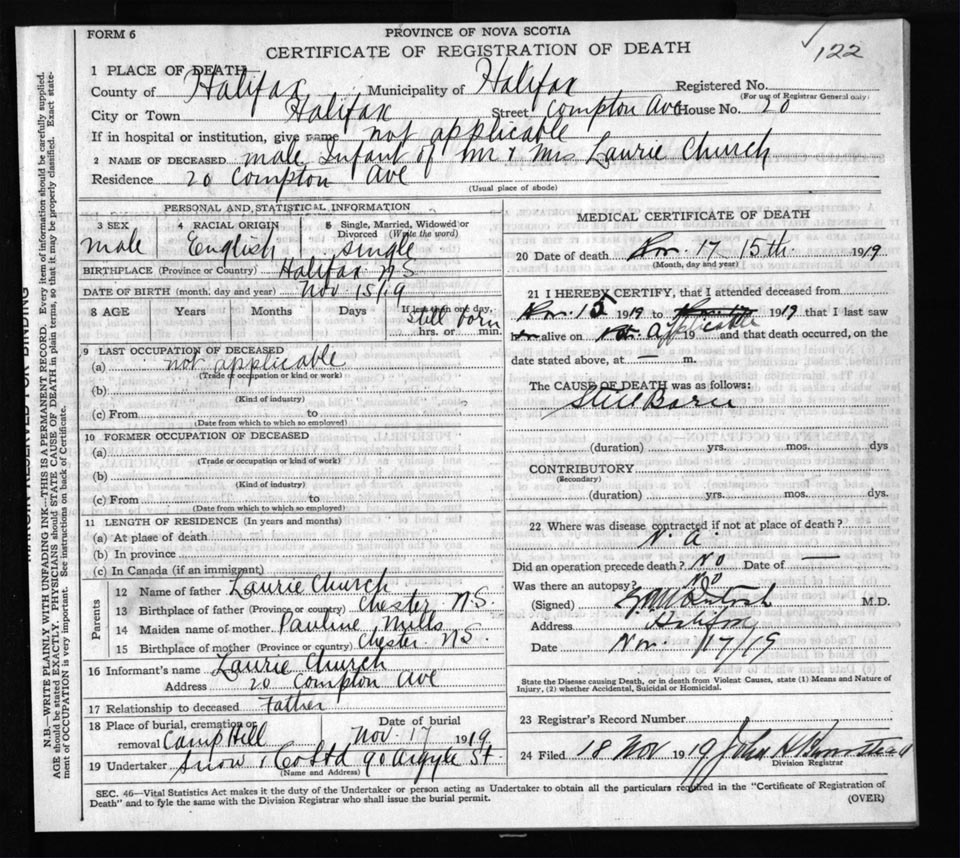 FORM 6
PROVINCE OF NOVA SCOTIA
CERTIFICATE OF REGISTRATION OF DEATH
122
1 PLACE OF DEATH
County of Halifax Municipality of Halifax Registered No.
(For use of Registrar General only)
City or Town Halifax Street Compton Ave House No. 20
If in hospital or institution, give name not applicable
2 NAME OF DECEASED male Infant of Mr & Mrs Laurie Church
Residence 20 Compton Ave
(Usual place of abode)
PERSONAL AND STATISTICAL INFORMATION
3 SEX male
4 RACIAL ORIGIN English
5 Single, Married, Widowed or Divorced (Write the word) single
BIRTHPLACE (Province or Country) Halifax N S
DATE OF BIRTH (month, day and year) Nov 15/19
8 AGE Years Months Days If less than one day, still born hrs. or min.
9 LAST OCCUPATION OF DECEASED
(a) not applicable
(Trade or occupation or kind of work)
(b)
(Kind of industry)
(c) From to
(Date from which to which so employed)
10 FORMER OCCUPATION OF DECEASED
(a)
(Trade or occupation or kind of work)
(b)
(Kind of industry)
(c) From to
(Date from which to which so employed)
11 LENGTH OF RESIDENCE (In years and months)
(a) At place of death
(b) In province
(c) In Canada (if an immigrant)
Parents
12 Name of father Laurie Church
13 Birthplace of father (Province or country) Chester N.S.
14 Maiden name of mother Pauline Mills
15 Birthplace of mother (Province or country) Chester N.S.
16 Informant's name Laurie Church
Address 20 Compton Ave
17 Relationship to deceased Father
18 Place of burial, cremation or removal Camp Hill
Date of burial Nov. 17 1919
19 Undertaker Snow & Co Ltd 90 Argyle St.
(Name and Address)
MEDICAL CERTIFICATE OF DEATH
20 Date of death Nov. 17 15th 1919
(Month, day and year)
21 I HEREBY CERTIFY, that I attended deceased from
Nov. 15 1919 to 1919 that I last saw
alive on Not Applicable 19 and that death occurred, on the
date stated above, at — m.
The CAUSE OF DEATH was as follows:
Still Born
(duration) yrs. mos. dys
CONTRIBUTORY
(Secondary)
(duration) yrs. mos. dys.
22 Where was disease contracted if not at place of death?
N. A.
Did an operation precede death? No Date of —
Was there an autopsy? No
(Signed) M.D.
Address Halifax
Date Nov. 17/19
State the Disease causing Death, or in death from Violent Causes, state (1) Means and Nature of
Injury, (2) whether Accidental, Suicidal or Homicidal.
23 Registrar's Record Number
24 Filed 18 Nov 1919 John H
Division Registrar
SEC. 46—Vital Statistics Act makes it the duty of the Undertaker or person acting as Undertaker to obtain all the particulars required in the "Certificate of Registration of
Death" and to fyle the same with the Division Registrar who shall issue the burial permit.
(OVER)
MARGIN RESERVED FOR BINDING
N.B.—WRITE PLAINLY WITH UNFADING INK—THIS IS A PERMANENT RECORD. Every item of information should be carefully supplied.
AGE should be stated EXACTLY. PHYSICIANS should STATE CAUSE OF DEATH in plain terms, so that it may be properly classified. Exact state-
ment of OCCUPATION is very important. See instructions on back of Certificate.